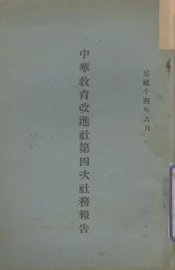 民國十四年六月
中華教育改進社第四次社務報告